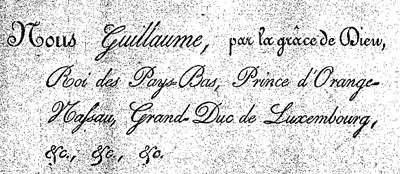 Nous Guillaume, par la grâce de Dieu,
Roi des Pays-Bas, Prince d'Orange-
Nassau, Grand-Duc de Luxembourg,
&c., &c., &c.